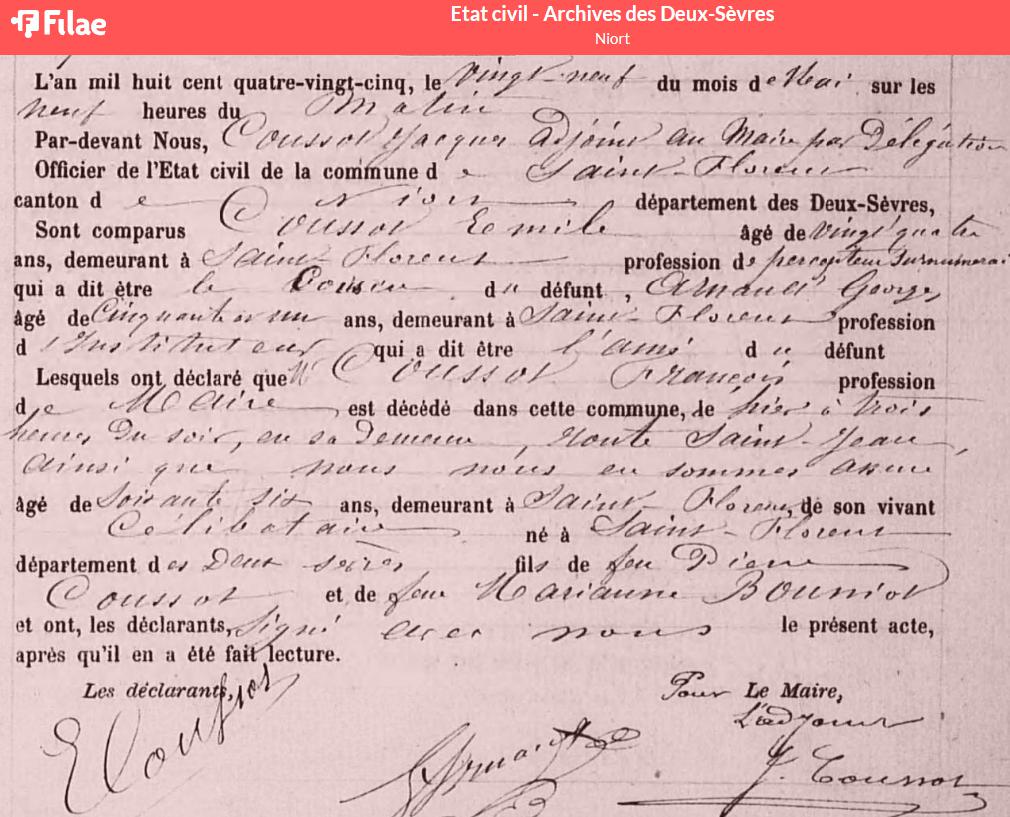 Filae
Etat civil - Archives des Deux-Sèvres
Niort
L'an mil huit cent quatre-vingt-cinq, le vingt-neuf du mois de Mai sur les
neuf heures du Matin
Par-devant Nous, Coussot Jacques adjoint au Maire par Délégation
Officier de l'Etat civil de la commune de Saint-Florent
canton de Niort département des Deux-Sèvres,
Sont comparus Coussot Emile âgé de vingt quatre
ans, demeurant à Saint-Florent profession de percepteur surnumérai
qui a dit être le Cousin du défunt, Arnault Georges
âgé de Cinquante et un ans, demeurant à Saint-Florent profession
d'Instituteur qui a dit être l'ami du défunt
Lesquels ont déclaré que Mr Coussot François profession
de Maire, est décédé dans cette commune, le hier à trois
heures du soir, en sa demeure, route Saint-Jean,
ainsi que nous nous en sommes assuré
âgé de Soixante six ans, demeurant à Saint-Florent, de son vivant
Célibataire né à Saint-Florent
département des Deux Sèvres fils de feu Pierre
Coussot et de feue Marianne Bouniot
et ont, les déclarants, signé avec nous le présent acte,
après qu'il en a été fait lecture.
Les déclarants, Pour Le Maire,
L'adjoint
E Coussot Arnault J. Coussot